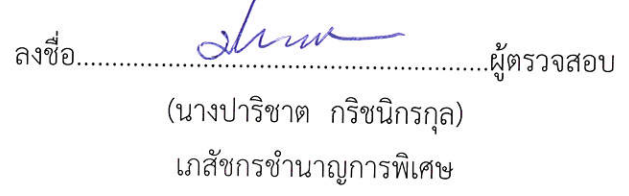 ลงชื่อ......................................................ผู้ตรวจสอบ
(นางปาริชาต กริชนิกรกุล)
เภสัชกรชำนาญการพิเศษ